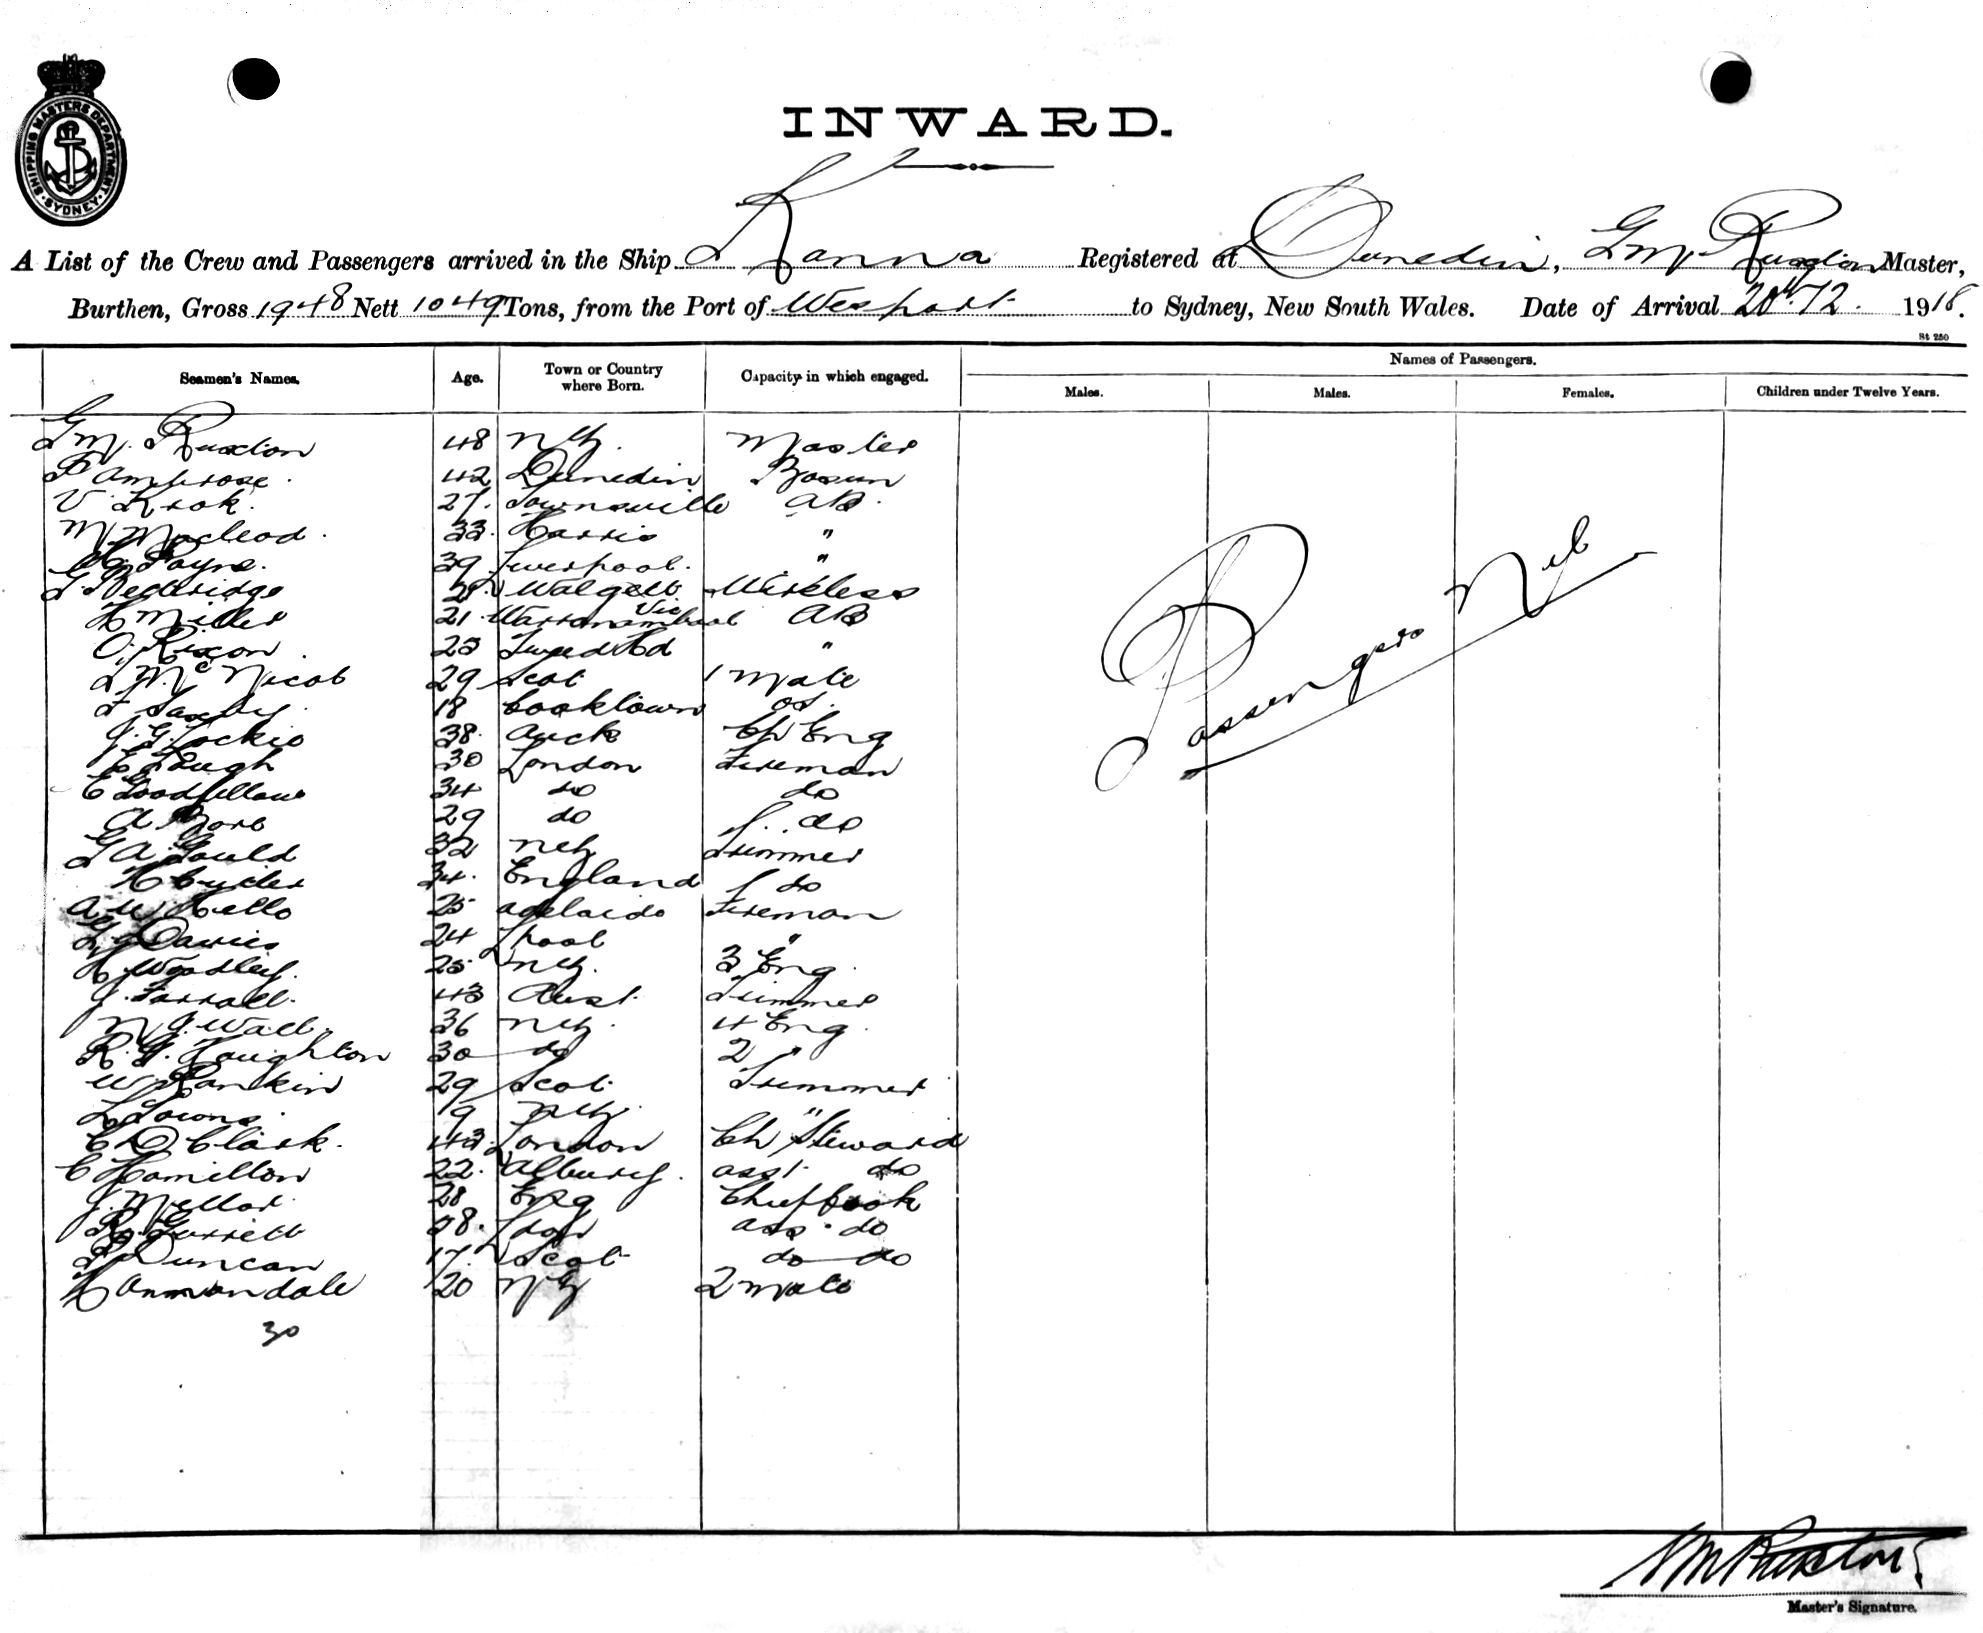 SHIPPING MASTERS DEPARTMENT · SYDNEY ·
INWARD.
A List of the Crew and Passengers arrived in the Ship Kanna Registered at Dunedin, Master,
Burthen, Gross 1948 Nett 1049 Tons, from the Port of Westport to Sydney, New South Wales. Date of Arrival 20th 12. 1918.
St 250
Seamen's Names. Age. Town or Country where Born. Capacity in which engaged. Names of Passengers.
Males. Males. Females. Children under Twelve Years.
Ruxton 48 NZ. Master
P Ambrose. 42 Dunedin Bosun
V. Krok. 27. Townsville AB.
M. Macleod. 33. Harris "
Payne. 39 Liverpool. "
Walgett. Wireless
H Miller 21. Warrnambool Vic AB
O. Rixon. 25 Tweed Hd "
McNicol 29 Scot 1 Mate
18 Cooktown OS.
J. G. Lockie 38. Auck Ch Eng
30 London Fireman
C Goodfellow 34 do do
A 29 do do
G A Gould 32 NZ Trimmer
H 34. England do
A W Kello 25 Adelaide Fireman
G. Davies 24 Lpool "
H Woodley. 25 NZ. 3 Eng.
J. Farrall. 43 Aust. Trimmer
N J. Wall. 36 NZ. 4 Eng.
R. G. Houghton 30 do 2 "
W Rankin 29 Scot. Trimmer
L 19 NZ. "
C D Clark. 43. London Ch Steward
C Hamilton 22. Albury. asst. do
J. Mellor. 28 Eng Chief Cook
R. Garrett ass. do
Duncan 17. Scot do do
H Annandale 20 NZ 2 Mate
30
Passengers Nil
Ruxton
Master's Signature.